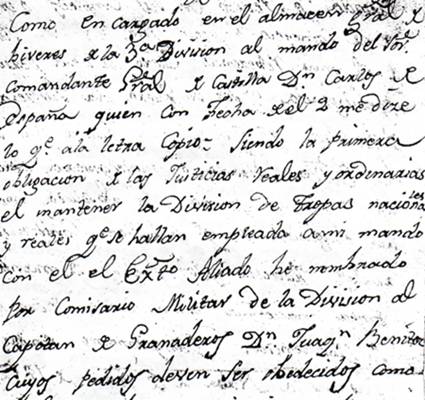 Como en cargado en el almacen Gral. de
biveres de la 3.ª Division al mando del Sor.
comandante Gral de Castilla Dn. Carlos de
España quien con Fecha del 2 me dize
lo qe. ála letra Copio = Siendo la primera
obligacion de las Justicias reales y ordinarias
el mantener la Division de Tropas nacionales
y reales qe. se hallan empleada a mi mando
con el el Exto. Aliado he nombrado
por Comisario Militar de la Division al
Capitan de Granaderos Dn. Juaqn. Benitez
Cuyos pedidos deven ser obedecidos como